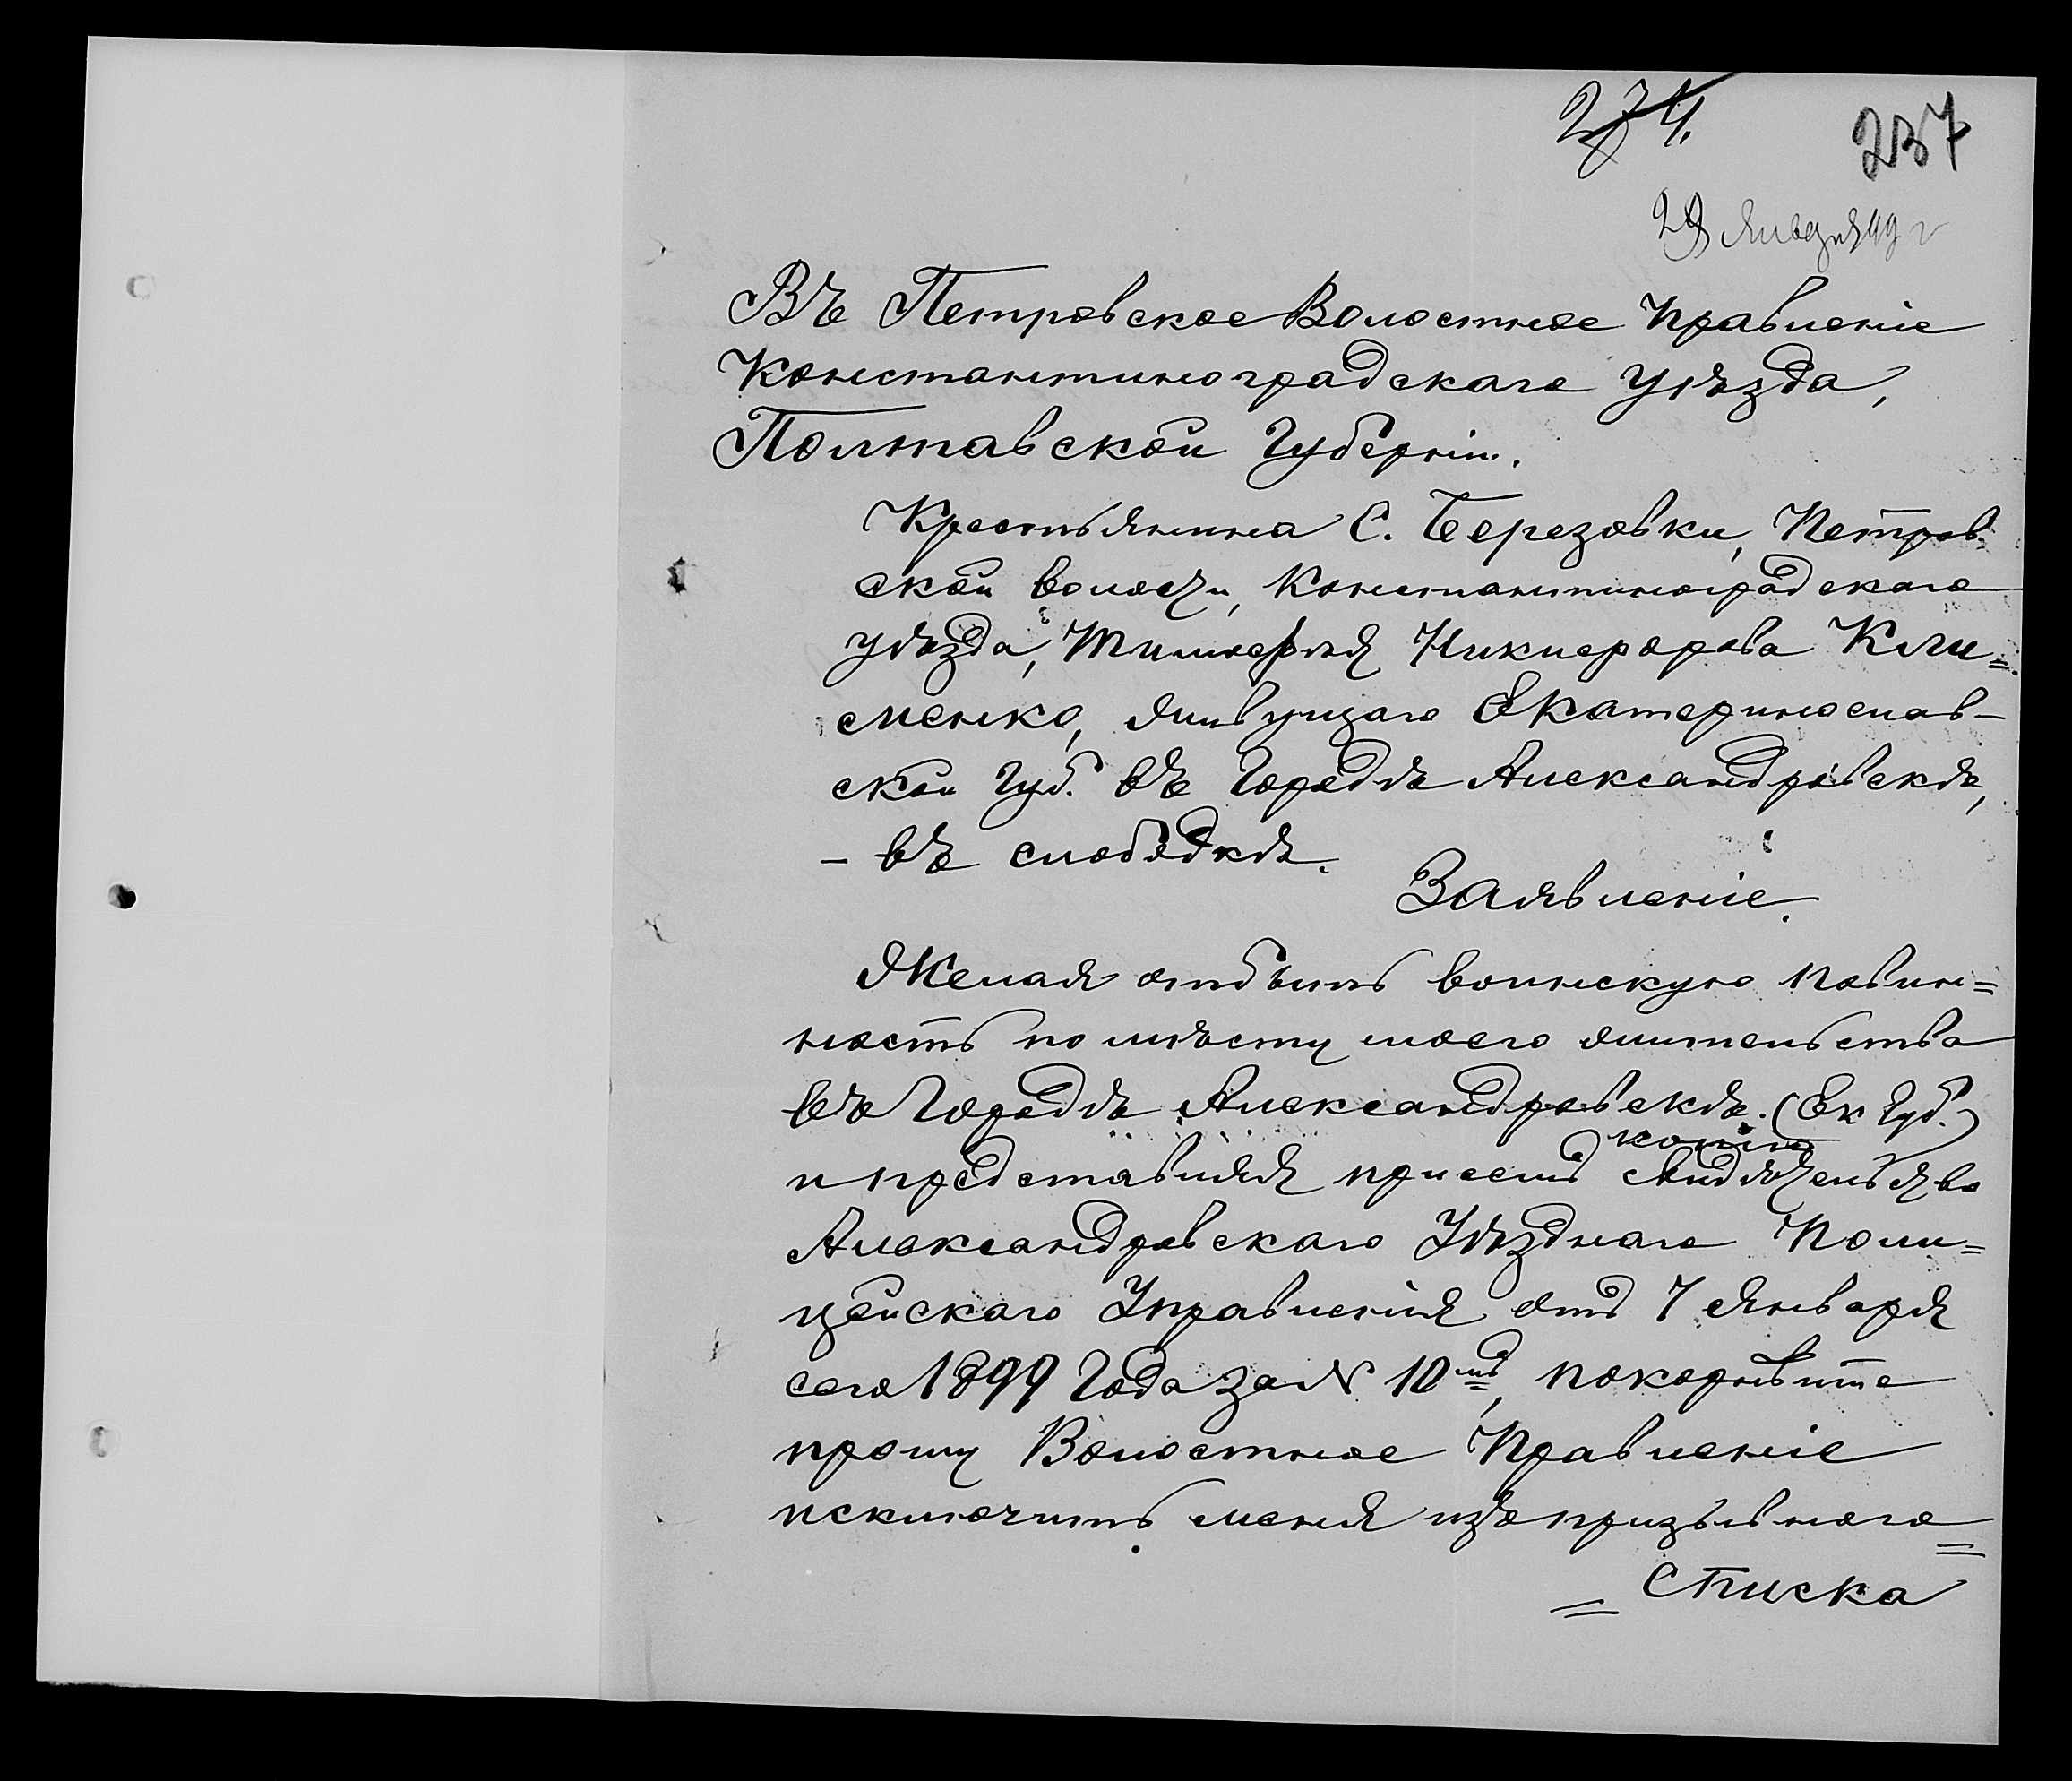 274.
237
29 Января 99 г
Въ Петровское Волостное Правленіе
Константиноградскаго уѣзда,
Полтавской Губерніи.
Крестьянина С. Березовки, Петров
ской волости, Константиноградскаго
уѣзда, Тимофея Никифорова Кли=
менко, живущаго Екатеринослав-
ской Губ. въ Городѣ Александровскѣ,
- въ слободкѣ.
Заявленіе.
Желая отбыть воинскую повин=
ность по мѣсту моего жительства
въ Городѣ Александровскѣ. (Ек Губ.)
копію
и представляя при семъ свидѣтельства
Александровскаго Уѣзднаго Поли=
цейскаго Управленія отъ 7 Января
сего 1899 Года за № 10мъ, покорнѣйше
прошу Волостное Правленіе
исключить меня изъ призывнаго=
= Списка